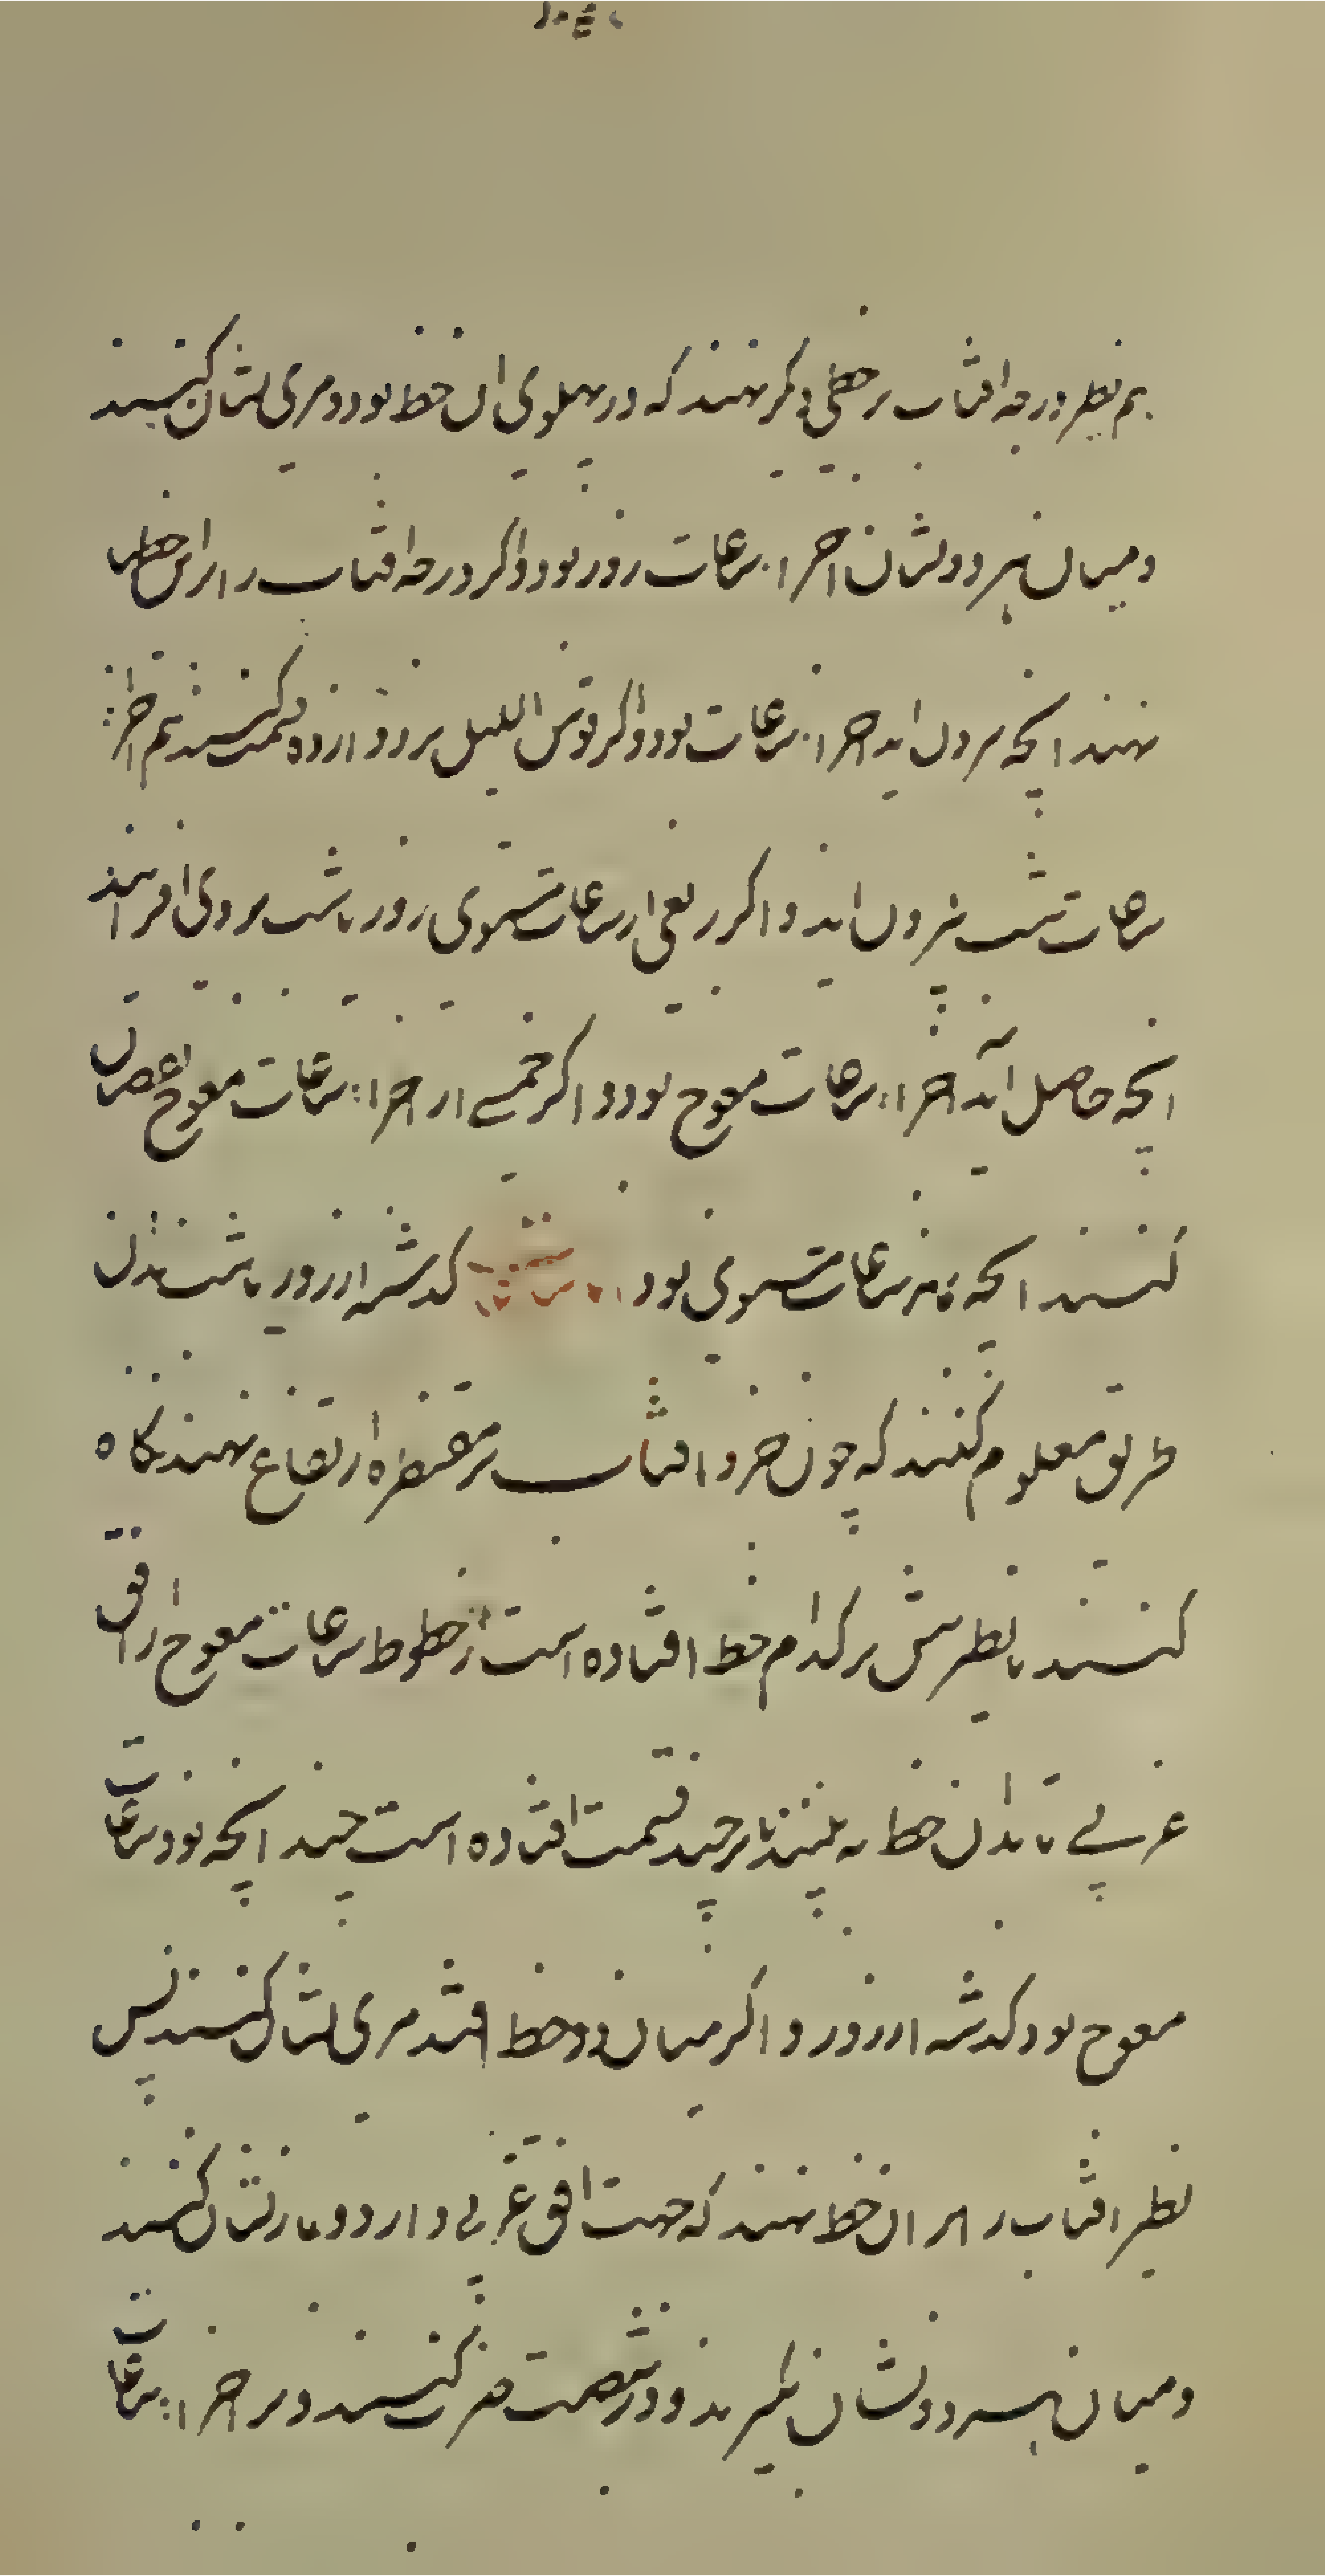 هم نظیر درجه افتاب بر خطی دکر نهند که در پهلوی ان خط بود و مری نشان کنند
و میان هر دو نشان اجزاء ساعات روز بود و اکر درجه افتاب را بر این خطها
نهند انچه بیرون اید اجزاء ساعات بود و اکر قوس اللیل بر دوازده قسمت کنند هم اجزاء
ساعات شب بیرون اید و اکر ربعی از ساعات مستوی روز یا شب بر وی افزایند
انچه حاصل آید اجزاء ساعات معوج بود و اکر خمسی از اجزاء ساعات معوج نقصان
کنند انچه بماند ساعات مستوی بود کذشته از روز یا شب بدان
طریق معلوم کنند که چون جزو افتاب بر مقنطره ارتفاع نهند نکاه
کنند تا نظیرش بر کدام خط افتاده است از خطوط ساعات معوج از افق
غربی تا بدان خط به بینند تا بر چند قسمت افتاده است چند انچه بود ساعات
معوج بود کذشته از روز و اکر میان دو خط افتد مری نشان کنند پس
نظیر افتاب را بر ان خط نهند که جهت افق غربی دارد و باز نشان کنند
و میان هر دو نشان بکیرند و در شصت ضرب کنند و بر اجزاء ساعات